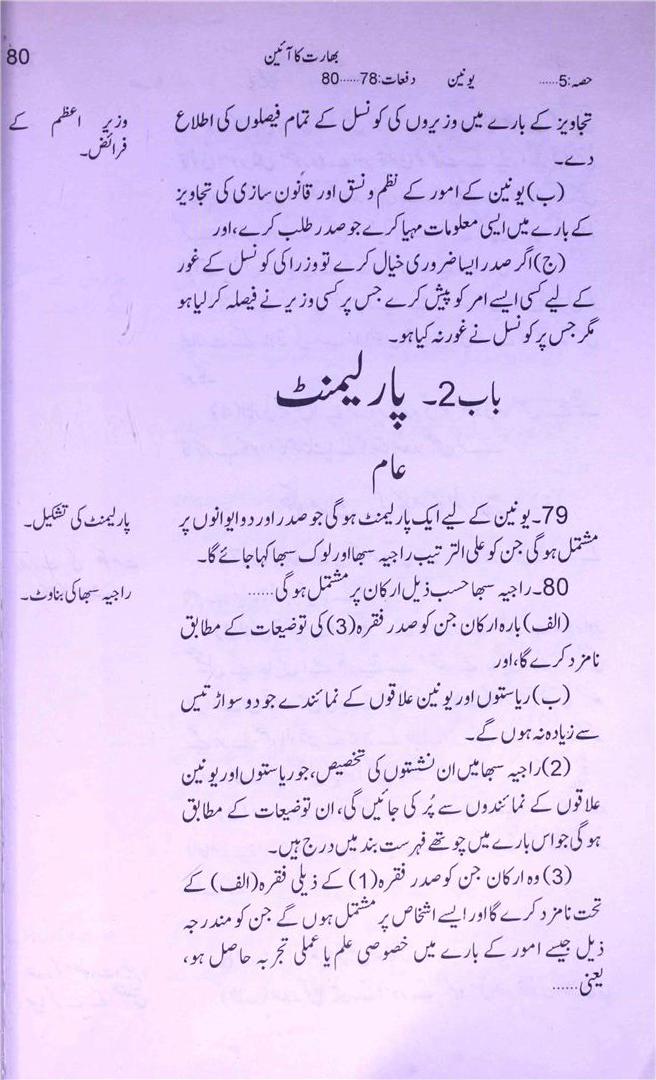 80
بھارت کا آئین
حصہ:5...... یونین دفعات:78......80
تجاویز کے بارے میں وزیروں کی کونسل کے تمام فیصلوں کی اطلاع
دے۔
وزیر اعظم کے
فرائض۔
(ب) یونین کے امور کے نظم و نسق اور قانون سازی کی تجاویز
کے بارے میں ایسی معلومات مہیا کرے جو صدر طلب کرے، اور
(ج) اگر صدر ایسا ضروری خیال کرے تو وزرا کی کونسل کے غور
کے لیے کسی ایسے امر کو پیش کرے جس پر کسی وزیر نے فیصلہ کر لیا ہو
مگر جس پر کونسل نے غور نہ کیا ہو۔
باب 2۔ پارلیمنٹ
عام
79۔ یونین کے لیے ایک پارلیمنٹ ہوگی جو صدر اور دو ایوانوں پر
مشتمل ہوگی جن کو علی الترتیب راجیہ سبھا اور لوک سبھا کہا جائے گا۔
پارلیمنٹ کی تشکیل۔
80۔ راجیہ سبھا حسب ذیل ارکان پر مشتمل ہوگی......
راجیہ سبھا کی بناوٹ۔
(الف) بارہ ارکان جن کو صدر فقرہ (3) کی توضیعات کے مطابق
نامزد کرے گا، اور
(ب) ریاستوں اور یونین علاقوں کے نمائندے جو دو سو اڑتیس
سے زیادہ نہ ہوں گے۔
(2) راجیہ سبھا میں ان نشستوں کی تخصیص، جو ریاستوں اور یونین
علاقوں کے نمائندوں سے پُر کی جائیں گی، ان توضیعات کے مطابق
ہوگی جو اس بارے میں چوتھے فہرست بند میں درج ہیں۔
(3) وہ ارکان جن کو صدر فقرہ (1) کے ذیلی فقرہ (الف) کے
تحت نامزد کرے گا اور ایسے اشخاص پر مشتمل ہوں گے جن کو مندرجہ
ذیل جیسے امور کے بارے میں خصوصی علم یا عملی تجربہ حاصل ہو،
یعنی......